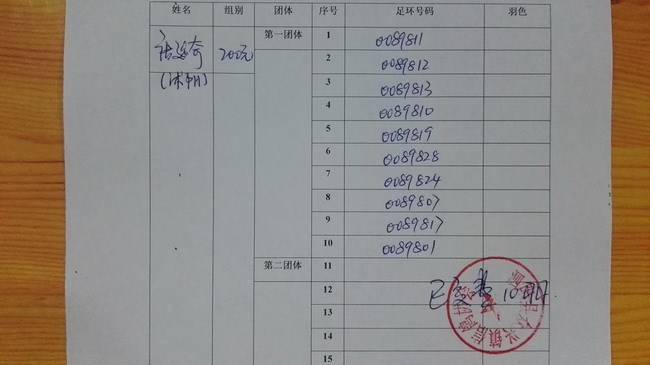 姓名 组别 团体 序号 足环号码 羽色
200元 第一团体 1 0089811
2 0089812
3 0089813
4 0089810
5 0089819
6 0089828
7 0089824
8 0089807
9 0089817
10 0089801
第二团体 11
12
13
14
15